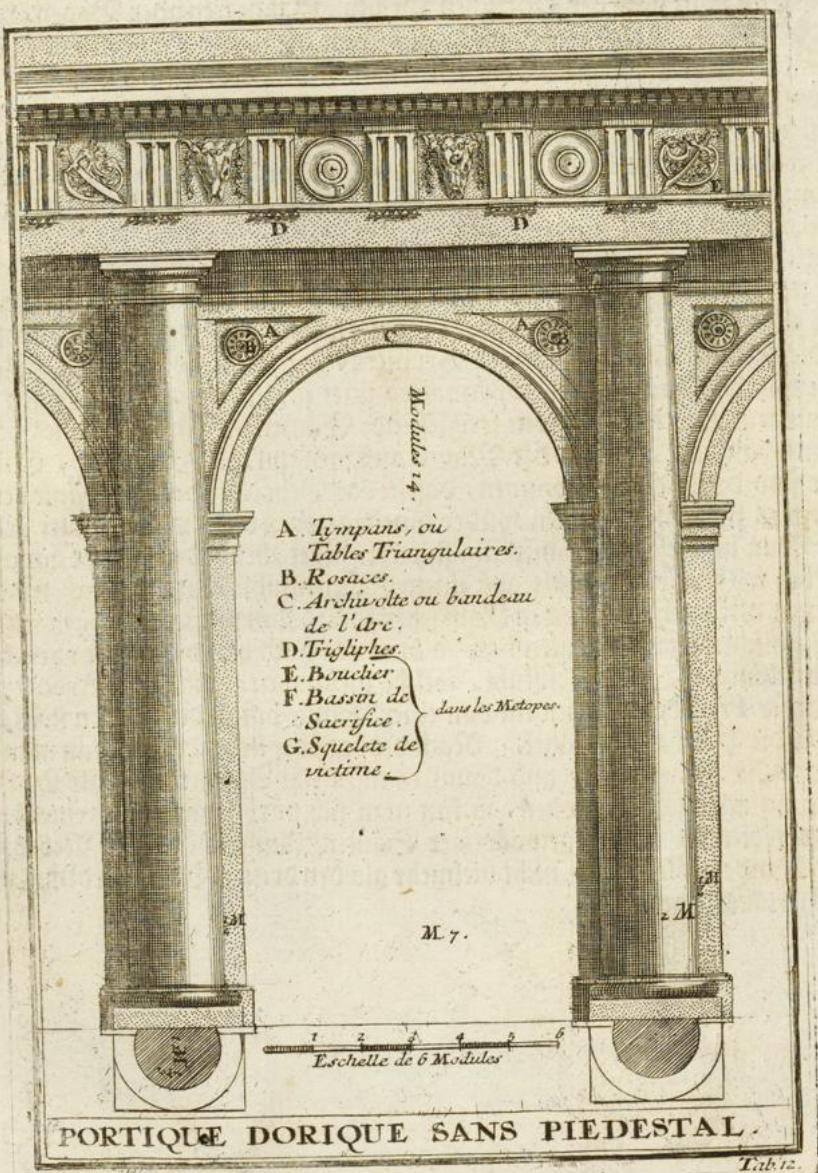 F
E
D
D
A
B
C
A
B
Modules 14.
A. Tympans, où
Tables Triangulaires.
B. Rosaces.
C. Archivolte ou bandeau
de l'Arc.
D. Trigliphes.
E. Bouclier
F. Bassin de
Sacrifice.
dans les Metopes.
G. Squelete de
victime.
½ M
M 7.
2 M
½ M
1 2 3 4 5 6
Eschelle de 6 Modules
PORTIQUE DORIQUE SANS PIEDESTAL.
Tab. 12.